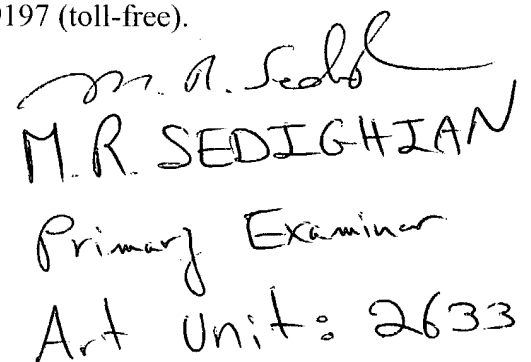 9197 (toll-free).
M. R.
M.R. SEDIGHIAN
Primary Examiner
Art Unit: 2633